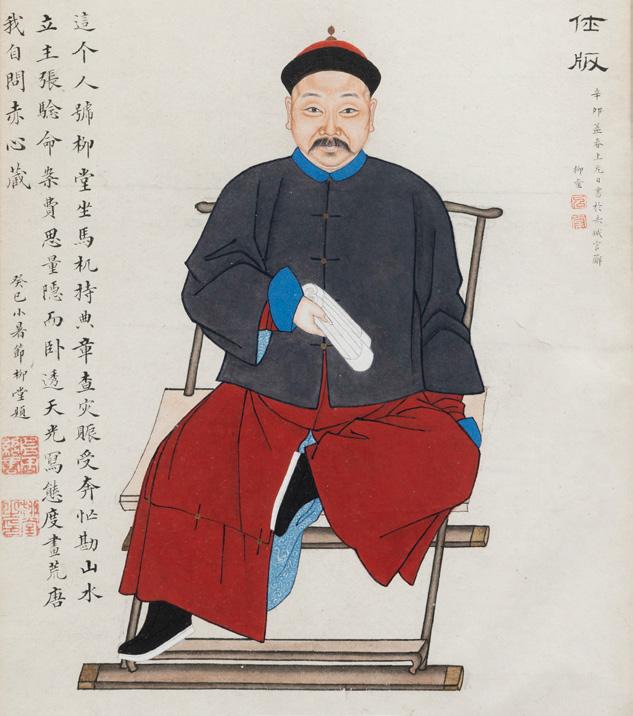 仕版
辛卯孟春上元日書於赤城官廨
柳堂
這个人號柳堂坐馬机持典章查灾賑受奔忙勘山水
立主張驗命案費思量隱而卧透天光寫態度畫荒唐
我自問赤心藏
癸巳小暑節柳堂題